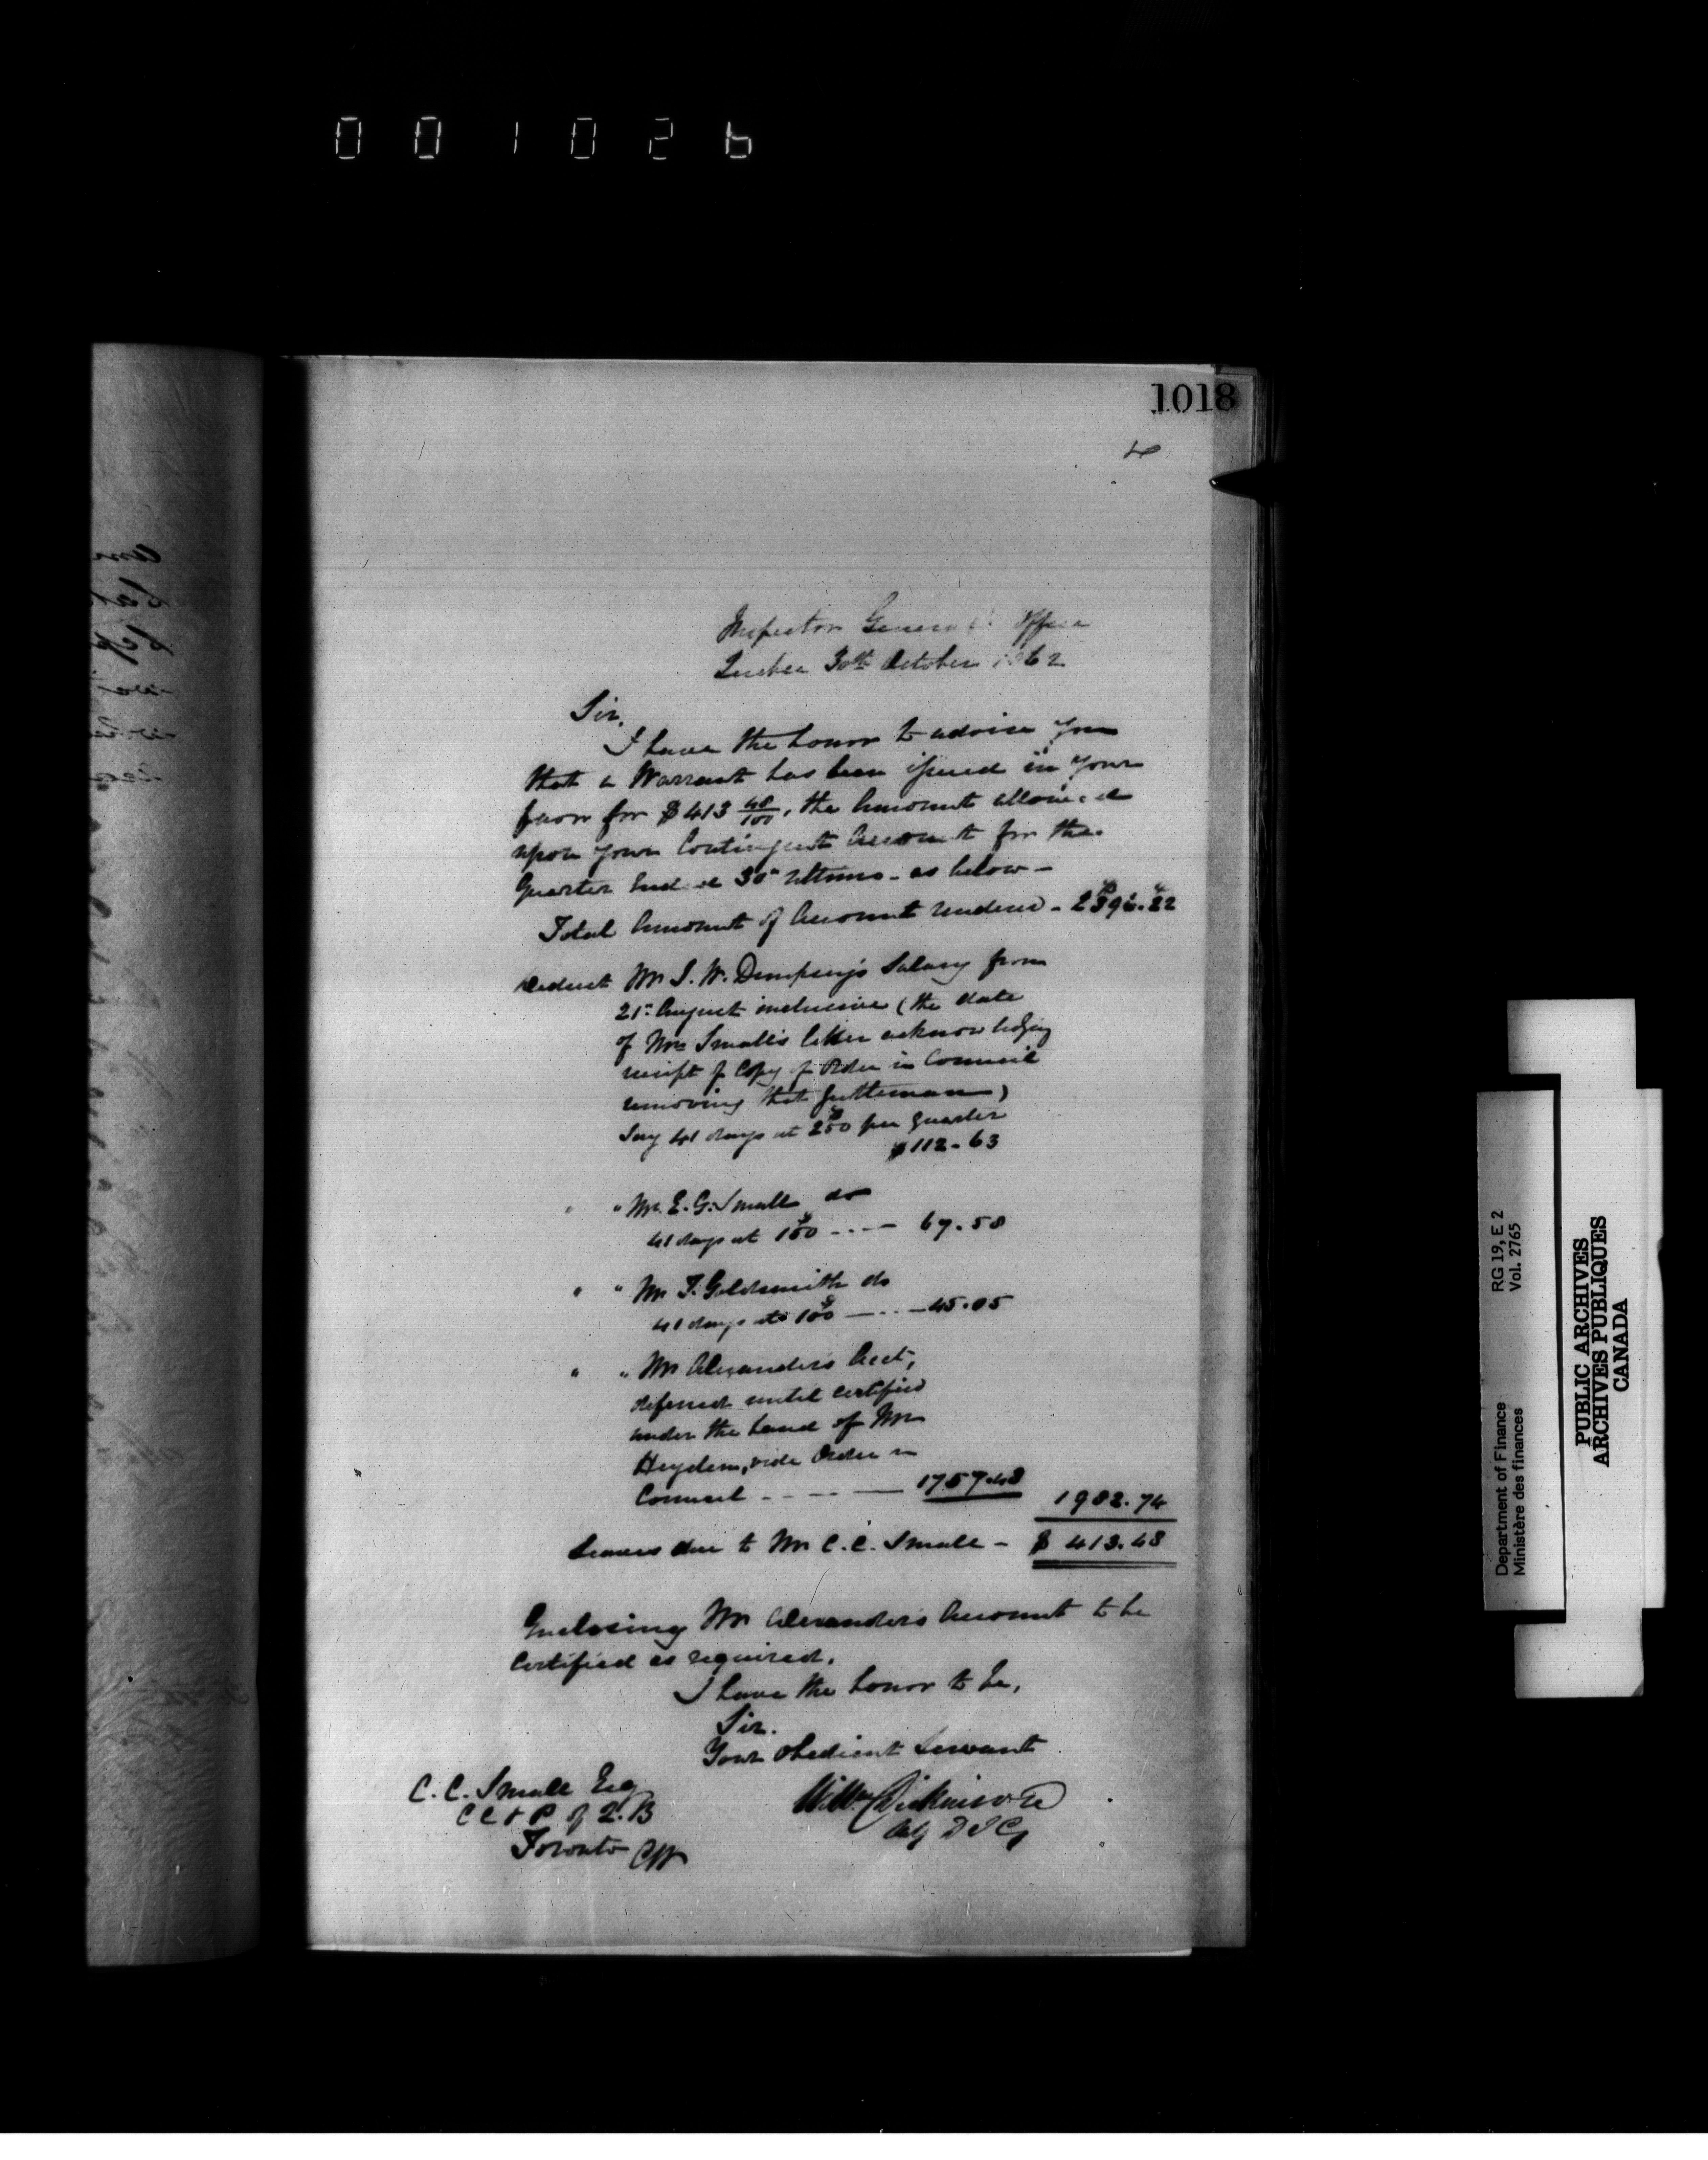 001026
1018
Inspector General's Office
Quebec 30th October 1862
Sir,
I have the honor to advise you
that a Warrant has been issued in your
favor for $413 48/100, the Amount allowed
upon your Contingent Account for the
Quarter Ended 30th Ultimo - as below -
Total Amount of Account rendered - 2396.22
Deduct Mr J. W. Dempsey's Salary from
21st August inclusive (the date
of Mr Small's letter acknowledging
receipt of Copy of Order in Council
removing that gentleman)
Say 41 days at $250 per quarter
$112-63
" " Mr. E. G. Small do
41 days at $150 ---- 67.58
" " Mr F. Goldsmith do
41 days at $100 ---- 45.05
" " Mr Alexanders Acct,
deferred until certified
under the hand of Mr
Heyden, vide Order in
Council ---- 1757.48
1982.74
Leaves due to Mr C. C. Small - $ 413.48
Enclosing Mr Alexanders Account to be
Certified as required.
I have the honor to be,
Sir.
Your Obedient Servant
Wm Dickinson
Actg D I G
C. C. Small Esq
C C & P of Q. B
Toronto CW
Department of Finance RG 19, E 2
Ministère des finances Vol. 2765
PUBLIC ARCHIVES
ARCHIVES PUBLIQUES
CANADA